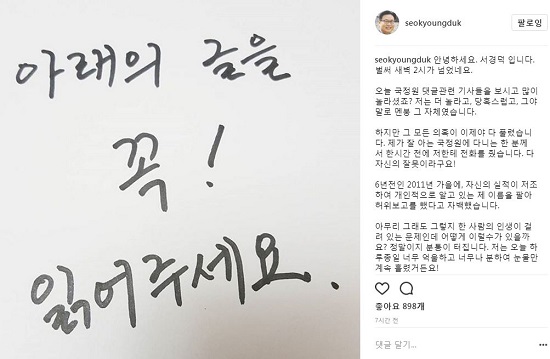 아래의 글을
꼭!
읽어주세요.
seokyoungduk
팔로잉
seokyoungduk 안녕하세요. 서경덕 입니다.
벌써 새벽 2시가 넘었네요.
오늘 국정원 댓글관련 기사들을 보시고 많이
놀라셨죠? 저는 더 놀라고, 당혹스럽고, 그야
말로 멘붕 그 자체였습니다.
하지만 그 모든 의혹이 이제야 다 풀렸습니
다. 제가 잘 아는 국정원에 다니는 한 분께
서 한시간 전에 저한테 전화를 줬습니다. 다
자신의 잘못이라구요!
6년전인 2011년 가을에, 자신의 실적이 저조
하여 개인적으로 알고 있는 제 이름을 팔아
허위보고를 했다고 자백했습니다.
아무리 그래도 그렇지 한 사람의 인생이 걸
려 있는 문제인데 어떻게 이럴수가 있을까
요? 정말이지 분통이 터집니다. 저는 오늘 하
루종일 너무 억울하고 너무나 분하여 눈물만
계속 흘렸거든요!
좋아요 898개
7시간 전
댓글 달기...